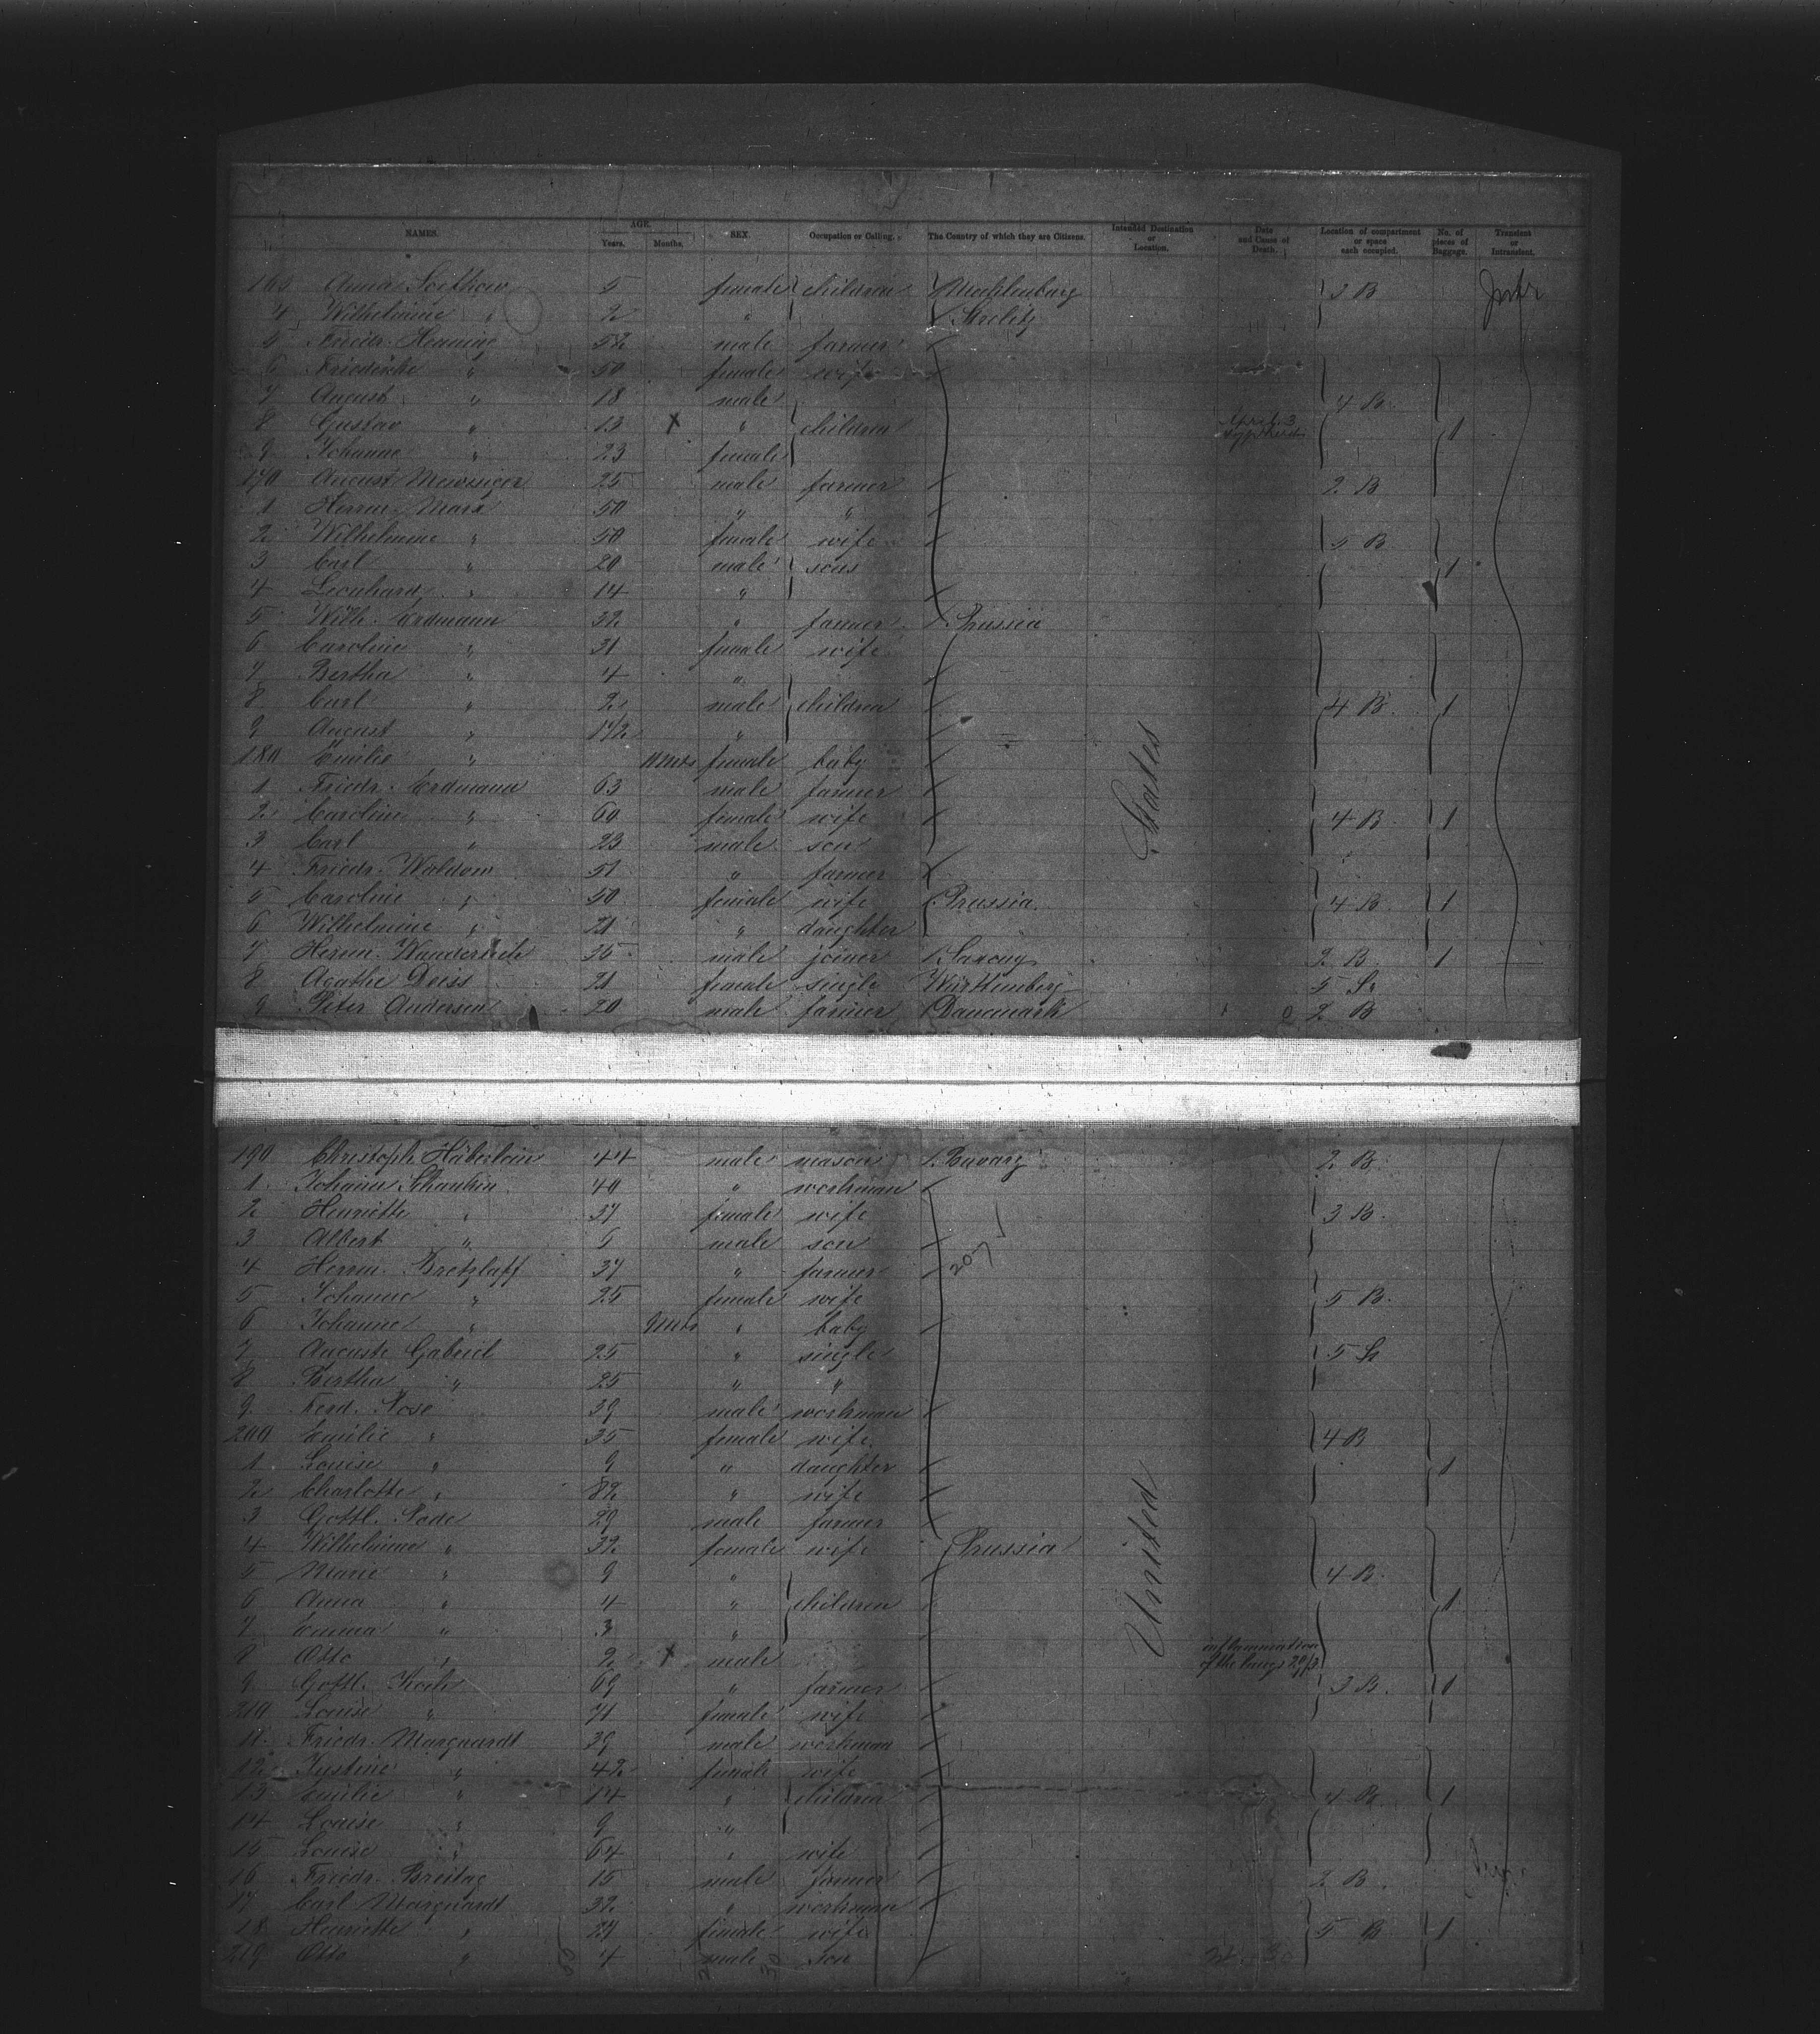 NAMES. AGE. Years. Months. SEX. Occupation or Calling. The Country of which they are Citizens. Intended Destination or Location. Date and Cause of Death. Location of compartment or space each occupied. No. of pieces of Baggage. Transient or Intransient.
Anna 5 female children Mecklenburg 3 B
4 Wilhelmine " 2 " Strelitz
5 Friedr. Henning 52 male farmer
6 Friederike " 50 female wife
7 August " 18 male 4 B
8 Gustav " 13 X " children April 3 1
9 Johanne " 23 female
170 August 25 male farmer 2 B
1 Herm. Marx 50 " "
2 Wilhelmine " 50 female wife 5 B
3 Carl " 20 male sons 1
4 Leonhard " 14 "
5 Wilh. Erdmann 32 " farmer Prussia
6 Caroline " 31 female wife
7 Bertha " 4 "
8 Carl " 2 male children 4 B. 1
9 August " 1 1/2 "
180 Emilie " female baby
1 Friedr. Erdmann 63 male farmer
2 Caroline " 60 female wife 4 B 1
3 Carl " 23 male son
4 Friedr. Waldow 51 " farmer
5 Caroline " 50 female wife Prussia. 4 B 1
6 Wilhelmine " 21 " daughter
7 Herm. Wunderlich male joiner Saxony 2 B. 1
8 Agathe Deiss 21 female single Württemberg 5 St
9 Peter Andersen 20 male farmer Danemark 2 B
States
190 Christoph Häberlein 44 male mason Bavary 2 B.
1 Johann 40 " workman
2 Henriette " 37 female wife 3 B.
3 Albert " 5 male son
4 Herm. Bretzlaff 37 " farmer 207
5 Johanne " 25 female wife 5 B.
6 Johanne " " baby
7 Auguste Gabriel 25 " single 5 St
8 Bertha " 25 " "
9 Ferd. Nose 39 male workman
200 Emilie " 35 female wife 4 B
1 Louise " 9 " daughter 1
2 Charlotte " 82 " wife
3 Gottl. Rode 29 male farmer
4 Wilhelmine " 32 female wife Prussia
5 Marie " 9 " 4 B.
6 Anna " 4 " children 1
7 Emma " 3 "
8 Otto " 2 X male inflammation of the lungs 29/3
9 Gottl. Koch 69 " farmer 3 B. 1
210 Louise " 71 female wife
11 Friedr. Marquardt 39 male workman
12 Justine " 42 female wife
13 Emilie " 14 " children 4 B. 1
14 Louise " 9 "
15 Louise " 64 " wife
16 Friedr. Freitag 15 male farmer 2 B.
17 Carl Marquardt 32 " workman
18 Henriette " 27 female wife 5 B 1
219 Otto " 4 male son
United